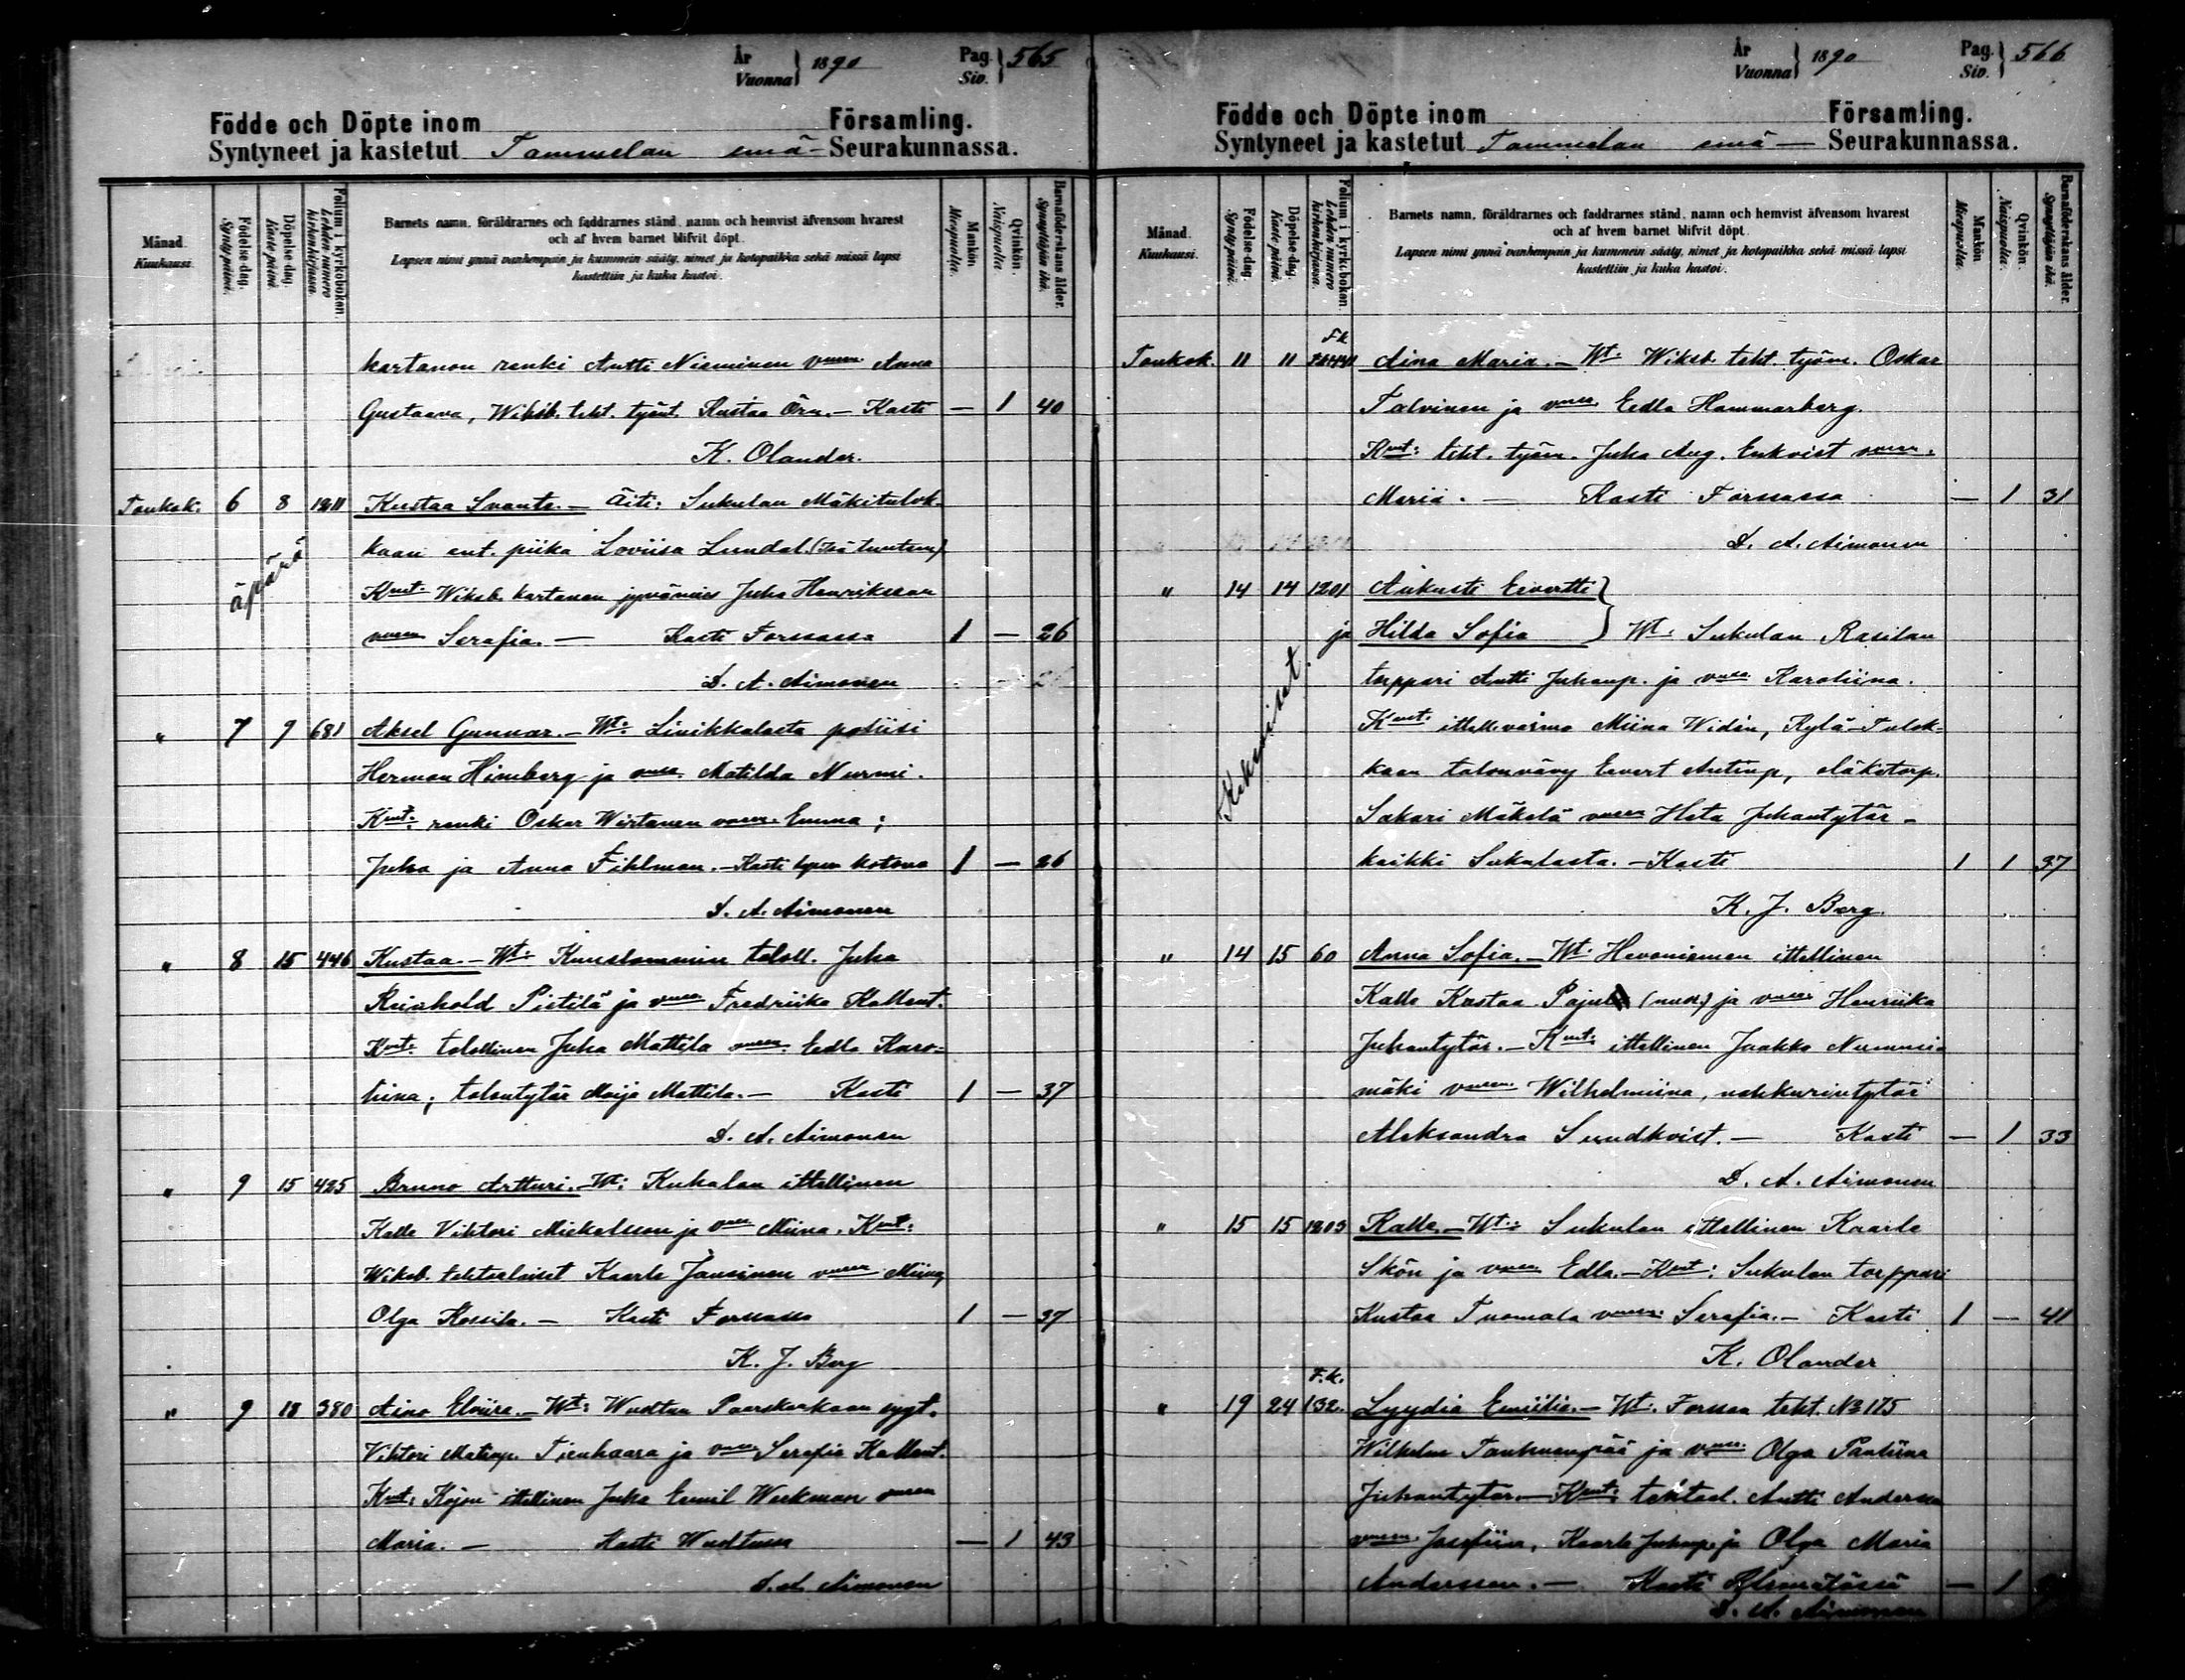 År
Vuonna } 1890
Pag.
Siv. } 565
Födde och Döpte inom Församling.
Syntyneet ja kastetut Tammelan emä- Seurakunnassa.
Månad.
Kuukausi.
Födelse dag.
Syntypäivä.
Döpelse dag.
Kaste päivä.
Folium i kyrkoboken.
Lehden numero kirkonkirjassa.
Barnets namn, föräldrarnes och faddrarnes stånd, namn och hemvist äfvensom hvarest
och af hvem barnet blifvit döpt.
Lapsen nimi ynnä vanhempain ja kummein sääty, nimet ja kotopaikka sekä missä lapsi
kastettiin ja kuka kastoi.
Mankön.
Miespuolta.
Qvinkön.
Naispuolta.
Barnaföderskans ålder.
Synnyttäjän ikä.
kartanon renki Antti Nieminen vmon Anna
Gustaava, Wiksb. teht. työnt. Kustaa Örn. - Kasti — 1 40
K. Olander.
Toukok. 6 8 1211 Kustaa Svante. - Äiti: Sukulan Mäkitulok-
kaan ent. piika Loviisa Lundal. (Isä tuntem)
äpärä
Kmt. Wiksb. kartanon jyvämies Juha Henriksson
vmon Serafia. — Kasti Forssassa 1 — 26
D. A. Aimonen
" 7 9 681 Aksel Gunnar. - Wt: Linikkalasta poliisi
Herman Himberg ja vmsa. Matilda Nurmi.
Kmt: renki Oskar Wirtanen vmon. Emma;
Juha ja Anna Fihlman. - Kasti lapsen kotona 1 — 26
D. A. Aimonen
" 8 15 446 Kustaa. - Wt: Kuuslammin taloll. Juha
Reinhold Pietilä ja vmsa Fredriika Kallent.
Kmt. talollinen Juha Mattila vmon. Eedla Karo-
liina; talontytär Maija Mattila. — Kasti 1 — 37
D. A. Aimonen
" 9 15 425 Bruno Artturi. - Wt: Kuhalan ittellinen
Kalle Viktori Mickelsson ja vmsa Miina. Kmt:
Wiksb. tehtaalaiset Kaarle Jansinen vmon Miina,
Olga Kossila. — Kasti Forssassa 1 — 37
K. J. Berg
" 9 18 380 Aino Elviira. - Wt: Wuoltun
Viktori Matinp. Tienhaara ja vmsa Serafia Kallent.
Kmt: Kojon ittellinen Juha Eemil Werkman vmon
Maria. — Kasti Wuoltussa — 1 43
D. A. Aimonen
År
Vuonna } 1890
Pag.
Siv. } 566
Födde och Döpte inom Församling.
Syntyneet ja kastetut Tammelan emä — Seurakunnassa.
Månad.
Kuukausi.
Födelse-dag.
Syntypäivä.
Döpelse-dag.
Kaste päivä.
Folium i kyrk:boken.
Lehden numero kirkonkirjassa.
Barnets namn, föräldrarnes och faddrarnes stånd, namn och hemvist äfvensom hvarest
och af hvem barnet blifvit döpt.
Lapsen nimi ynnä vanhempain ja kummein sääty, nimet ja kotopaikka sekä missä lapsi
kastettiin ja kuka kastoi.
Mankön
Miespuolta.
Qvinkön.
Naispuolta.
Barnaföderskans ålder.
Synnyttäjän ikä.
Toukok. 11 11 Aina Maria. - Wt: Wiksb. teht. työm. Oskar
Talvinen ja vmsa Eedla Hammarberg.
Kmt: teht. työm. Juha Aug. Enkvist vmon.
Maria. — Kasti Forssassa — 1 31
D. A. Aimonen
" 14 14 1201 Aukusti Eevertti }
ja Hilda Sofia } Wt: Sukulan Rasilan
torppari Antti Juhanp. ja vmsa Karoliina.
Kaksoiset.
Kmt: ittell. vaimo Miina Widén, Kylä-Tulok-
kaan talonvävy Eevert Antinp, eläkotorp.
Sakari Mäkelä vmon Heta Juhantytär -
kaikki Sukulasta. - Kasti 1 1 37
K. J. Berg.
" 14 15 60 Anna Sofia. - Wt: Hevoniemen ittellinen
Kalle Kustaa Pajula ja vmsa Henriika
Juhantytär. - Kmt: ittellinen Jaakko Nummis-
mäki vmon. Wilhelmiina, nahkurintytär
Aleksandra Sundkvist. — Kasti — 1 33
D. A. Aimonen
" 15 15 1203 Kalle. - Wt: Sukulan ittellinen Kaarle
Skön ja vmsa Edla. - Kmt: Sukulan torppari
Kustaa Tuomala vmon. Serafia. - Kasti 1 — 41
K. Olander
F.k.
" 19 24 132. Lyydia Emiilia. - Wt: Forssan teht. No 175
Wilhelm Tanhuanpää ja vmsa. Olga Pauliina
Juhantytär. - Kmt: tehtaal. Antti Andersson
vmon. Josefiina, Kaarle Juhanp. ja Olga Maria
Andersson. — Kasti — 1
D. A. Aimonen